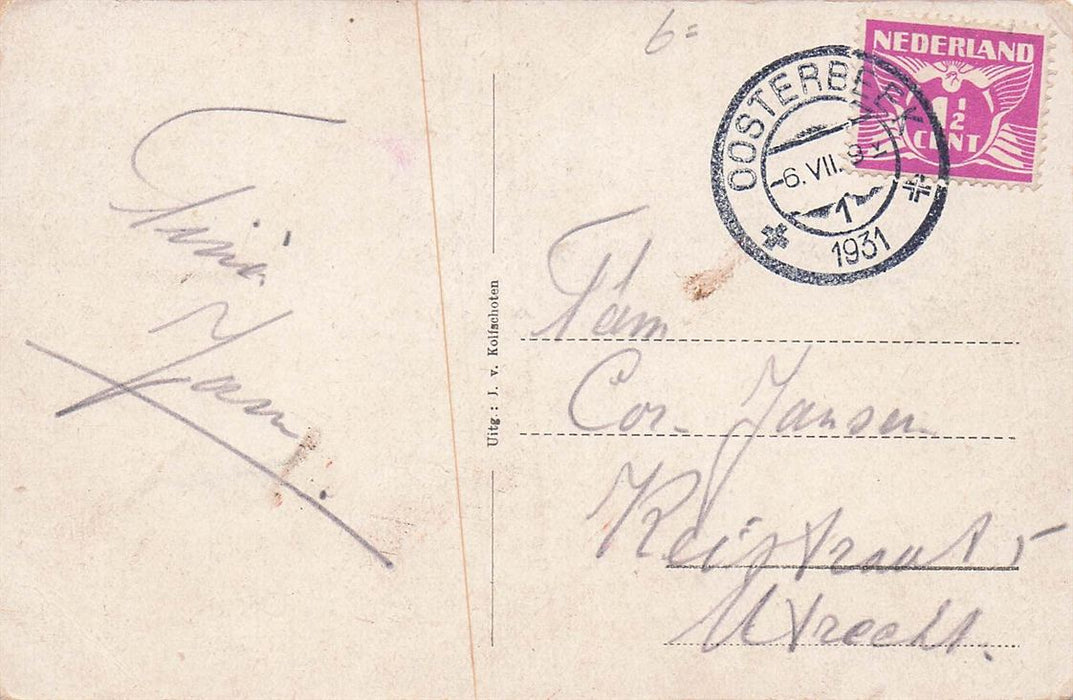 6=
NEDERLAND
1½
CENT
OOSTERBEEK
-6.VII. 9
1
1931
Tini
Jan.
Uitg.: J. v. Kolfschoten
Fam
Cor. Jansen
Keistraat 5
Utrecht.